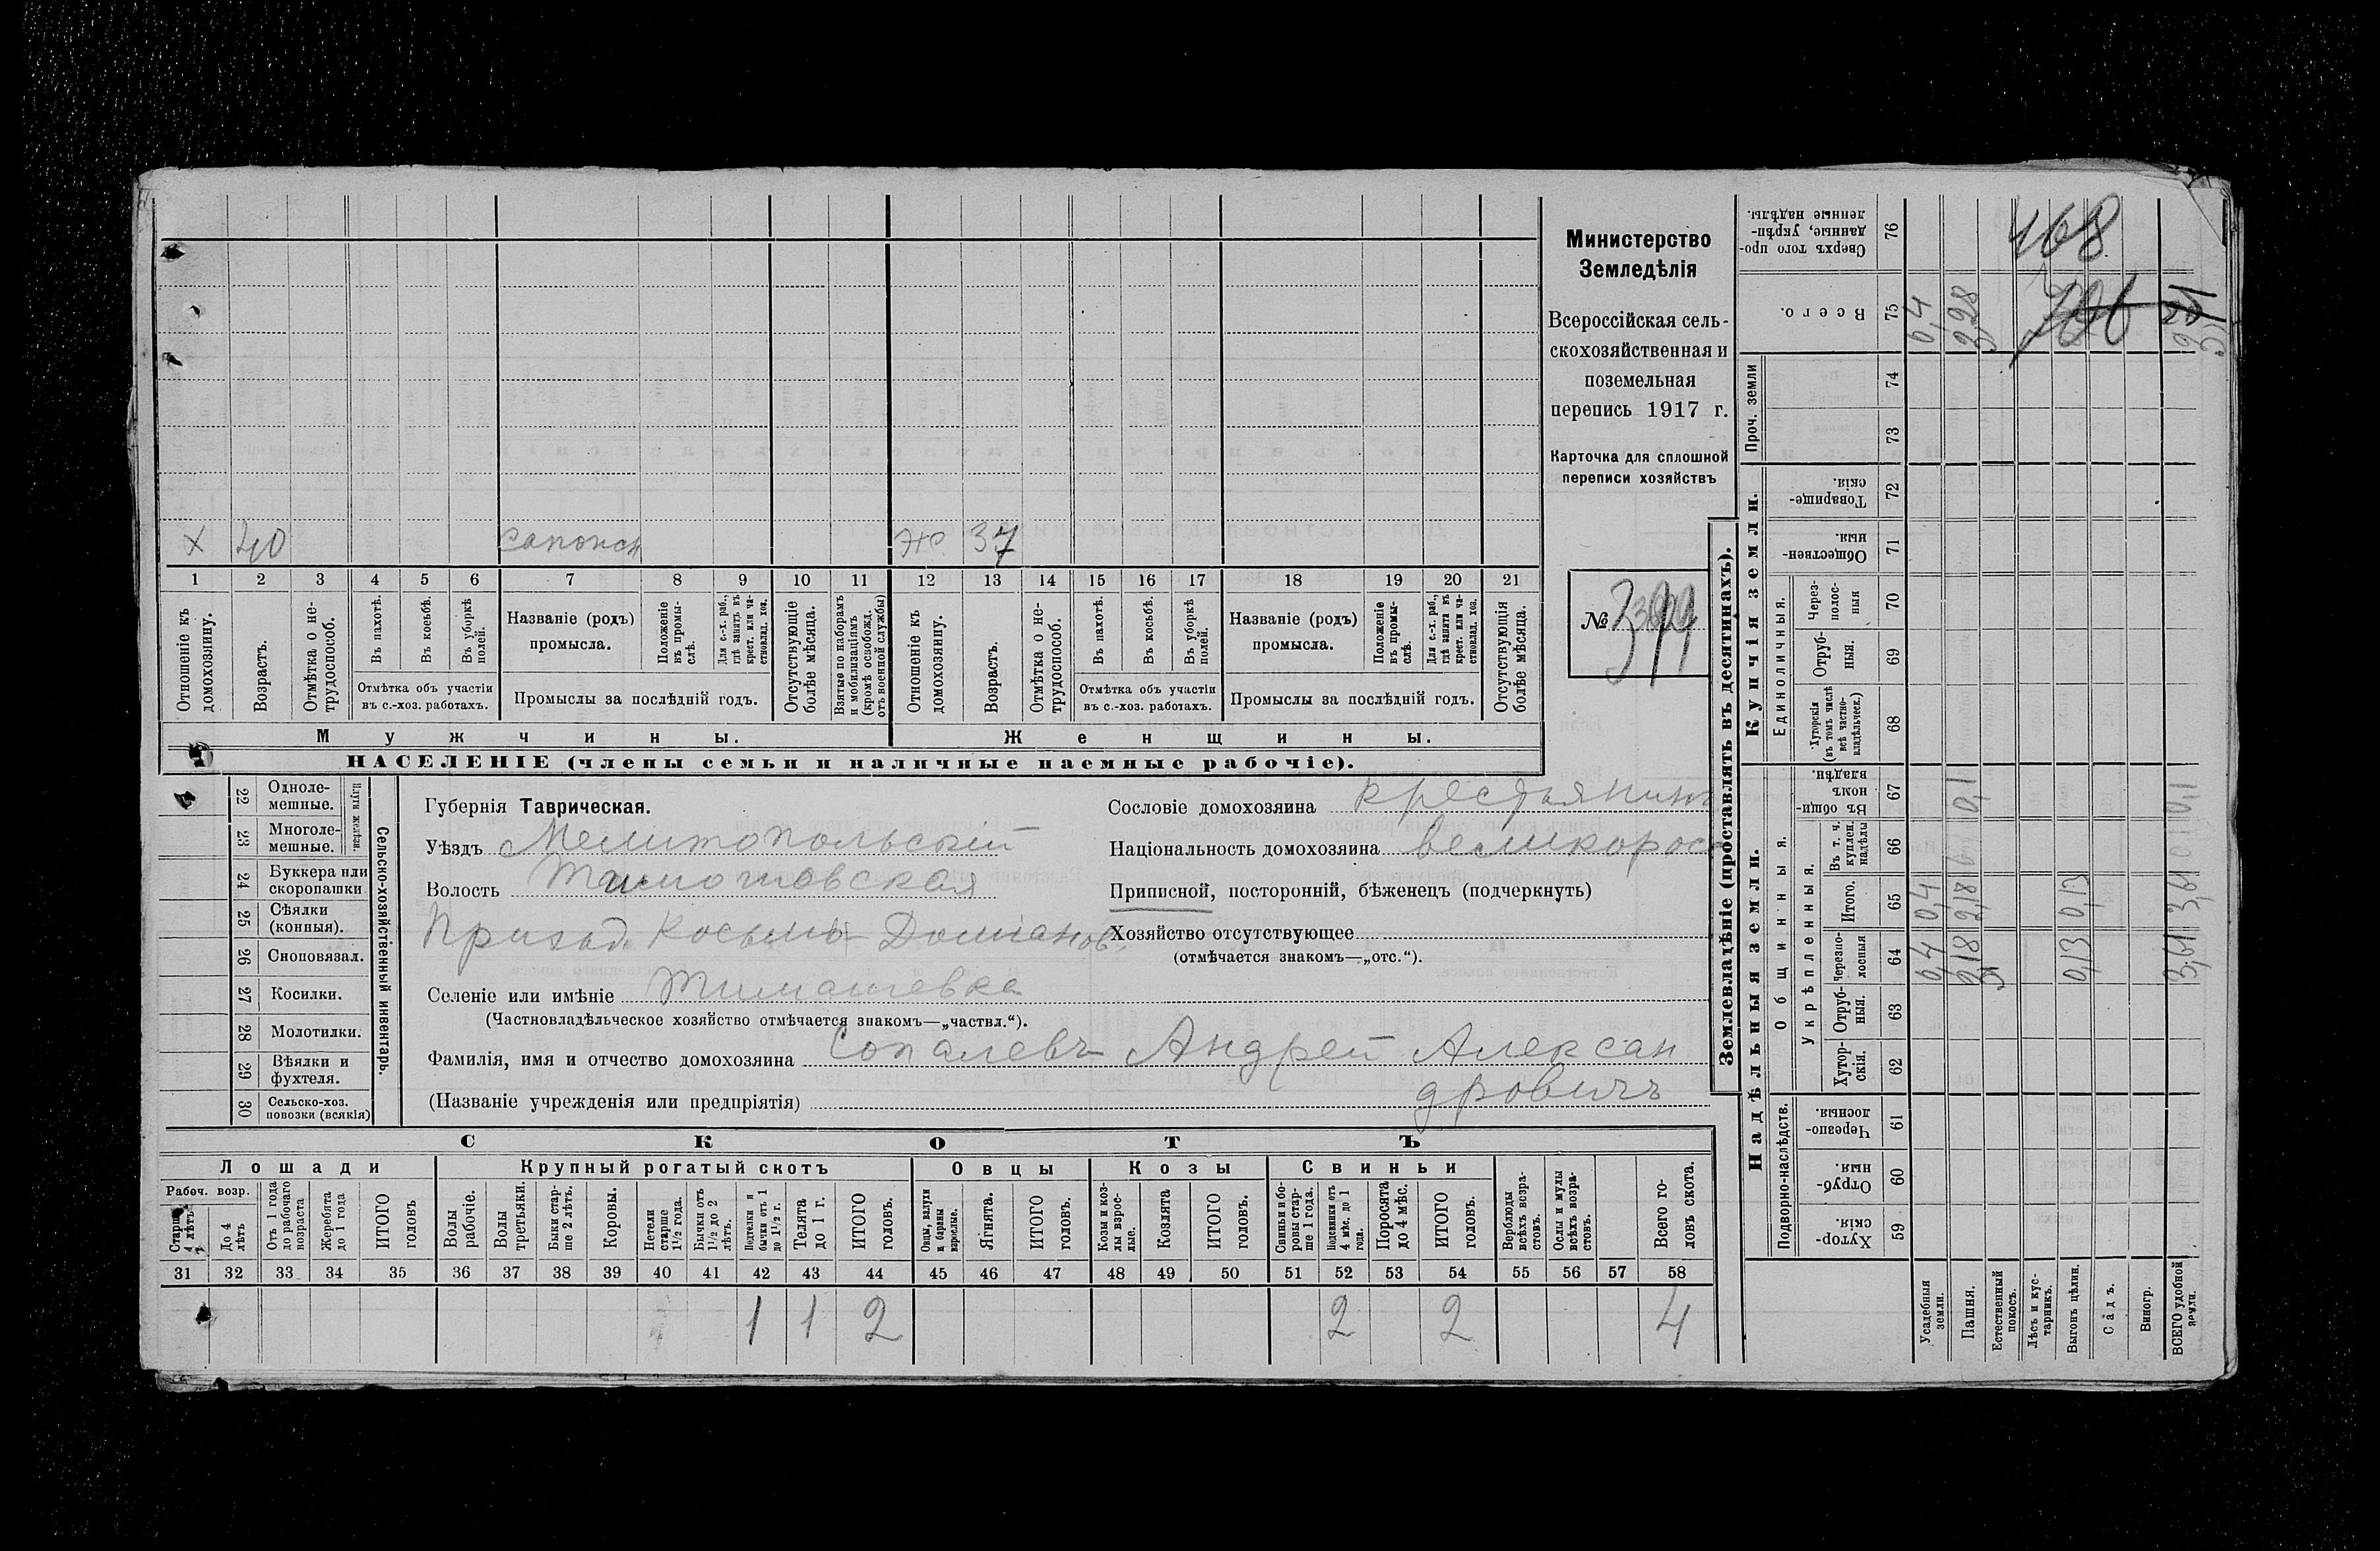 Министерство
Земледѣлія
Всероссійская сель-
скохозяйственная и
поземельная
перепись 1917 г.
Карточка для сплошной
переписи хозяйствъ
№
Х 40 сапожн 37
1 2 3 4 5 6 7 8 9 10 11 12 13 14 15 16 17 18 19 20 21
Отношеніе къ домохозяину.
Возрастъ.
Отмѣтка о не-трудоспособ.
Въ пахотѣ.
Въ косьбѣ.
Въ уборкѣ полей.
Отмѣтка объ участіи
въ с.-хоз. работахъ.
Названіе (родъ)
промысла.
Положеніе въ промы-слѣ.
Для с.-х. раб., гдѣ занятъ въ крест. или ча-стновлад. хоз.
Промыслы за послѣдній годъ.
Отсутствующіе болѣе мѣсяца.
Взятые по наборамъ и мобилизаціямъ (кромѣ освобожд. отъ военной службы)
Отношеніе къ домохозяину.
Возрастъ.
Отмѣтка о не-трудоспособ.
Въ пахотѣ.
Въ косьбѣ.
Въ уборкѣ полей.
Отмѣтка объ участіи
въ с.-хоз. работахъ.
Названіе (родъ)
промысла.
Положеніе въ промы-слѣ.
Для с.-х. раб., гдѣ занята въ крест. или ча-стновлад. хоз.
Промыслы за послѣдній годъ.
Отсутствующія болѣе мѣсяца.
Мужчины. Женщины.
НАСЕЛЕНІЕ (члены семьи и наличные наемные рабочіе).
22 Однолемешные.
23 Многолемешные.
Плуги желѣзн.
24 Буккера или скоропашки
25 Сѣялки (конныя).
26 Сноповязал.
27 Косилки.
28 Молотилки.
29 Вѣялки и фухтеля.
30 Сельско-хоз. повозки (всякія)
Сельско-хозяйственный инвентарь.
Губернія Таврическая.
Уѣздъ Мелитопольскій
Волость Тимошовская
Приход. Косьмы Доміанов.
Селеніе или имѣніе Тимашевка
(Частновладѣльческое хозяйство отмѣчается знакомъ—„частвл.“).
Фамилія, имя и отчество домохозяина Сопалевъ Андрей Алексан
дровичъ
(Названіе учрежденія или предпріятія)
Сословіе домохозяина крестьянинъ
Національность домохозяина великорос
Приписной, посторонній, бѣженецъ (подчеркнуть)
Хозяйство отсутствующее
(отмѣчается знакомъ—„отс.“).
СКОТЪ
Лошади Крупный рогатый скотъ Овцы Козы Свиньи
Рабоч. возр.
Старше 4 лѣтъ
До 4 лѣтъ
Отъ 1 года до рабочаго возраста
Жеребята до 1 года
ИТОГО головъ
Волы рабочіе.
Волы третьяки.
Быки стар-ше 2 лѣтъ.
Коровы.
Нетели старше 1½ года.
Бычки отъ 1½ до 2 лѣтъ.
Подтелки и бычки отъ 1 до 1½ г.
Телята до 1 г.
ИТОГО головъ.
Овцы, валухи и бараны взрослые.
Ягнята.
ИТОГО головъ.
Козы и коз-лы взрос-лые.
Козлята
ИТОГО головъ.
Свиньи и бо-ровы стар-ше 1 года.
Подсвинки отъ 4 мѣс. до 1 года.
Поросята до 4 мѣс.
ИТОГО головъ.
Верблюды всѣхъ возра-стовъ.
Ослы и мулы всѣхъ возра-стовъ.
Всего го-ловъ скота.
31 32 33 34 35 36 37 38 39 40 41 42 43 44 45 46 47 48 49 50 51 52 53 54 55 56 57 58
1 1 2 2 2 4
Землевладѣніе (проставлять въ десятинахъ).
Надѣльныя земли. Купчія земли. Проч. земли
Подворно-наслѣдств.
Общинныя.
Укрѣпленныя.
Единоличныя.
Хутор-скія. 59
Отруб-ныя. 60
Черезпо-лосныя 61
Хутор-скія. 62
Отруб-ныя. 63
Черезпо-лосныя 64
Итого. 65
Въ т. ч. куплен. надѣлы 66
Въ общи-номъ владѣн. 67
Хуторскія (въ томъ числѣ всѣ частно-владѣльческ.) 68
Отруб-ныя. 69
Через-полос-ныя 70
Обществен-ныя. 71
Товарище-скія. 72
73
74
Всего. 75
Сверхъ того про-данные, укрѣп-ленные надѣлы. 76
Усадебныя земли. 0,4 0,4 0,4
Пашня. 2,18 2,18 0,1
Естественный покосъ.
Лѣсъ и кус-тарникъ.
Выгонъ цѣлин. 0,13 0,13
Садъ.
Виногр.
ВСЕГО удобной земли. 3,61 3,61 0,1
468